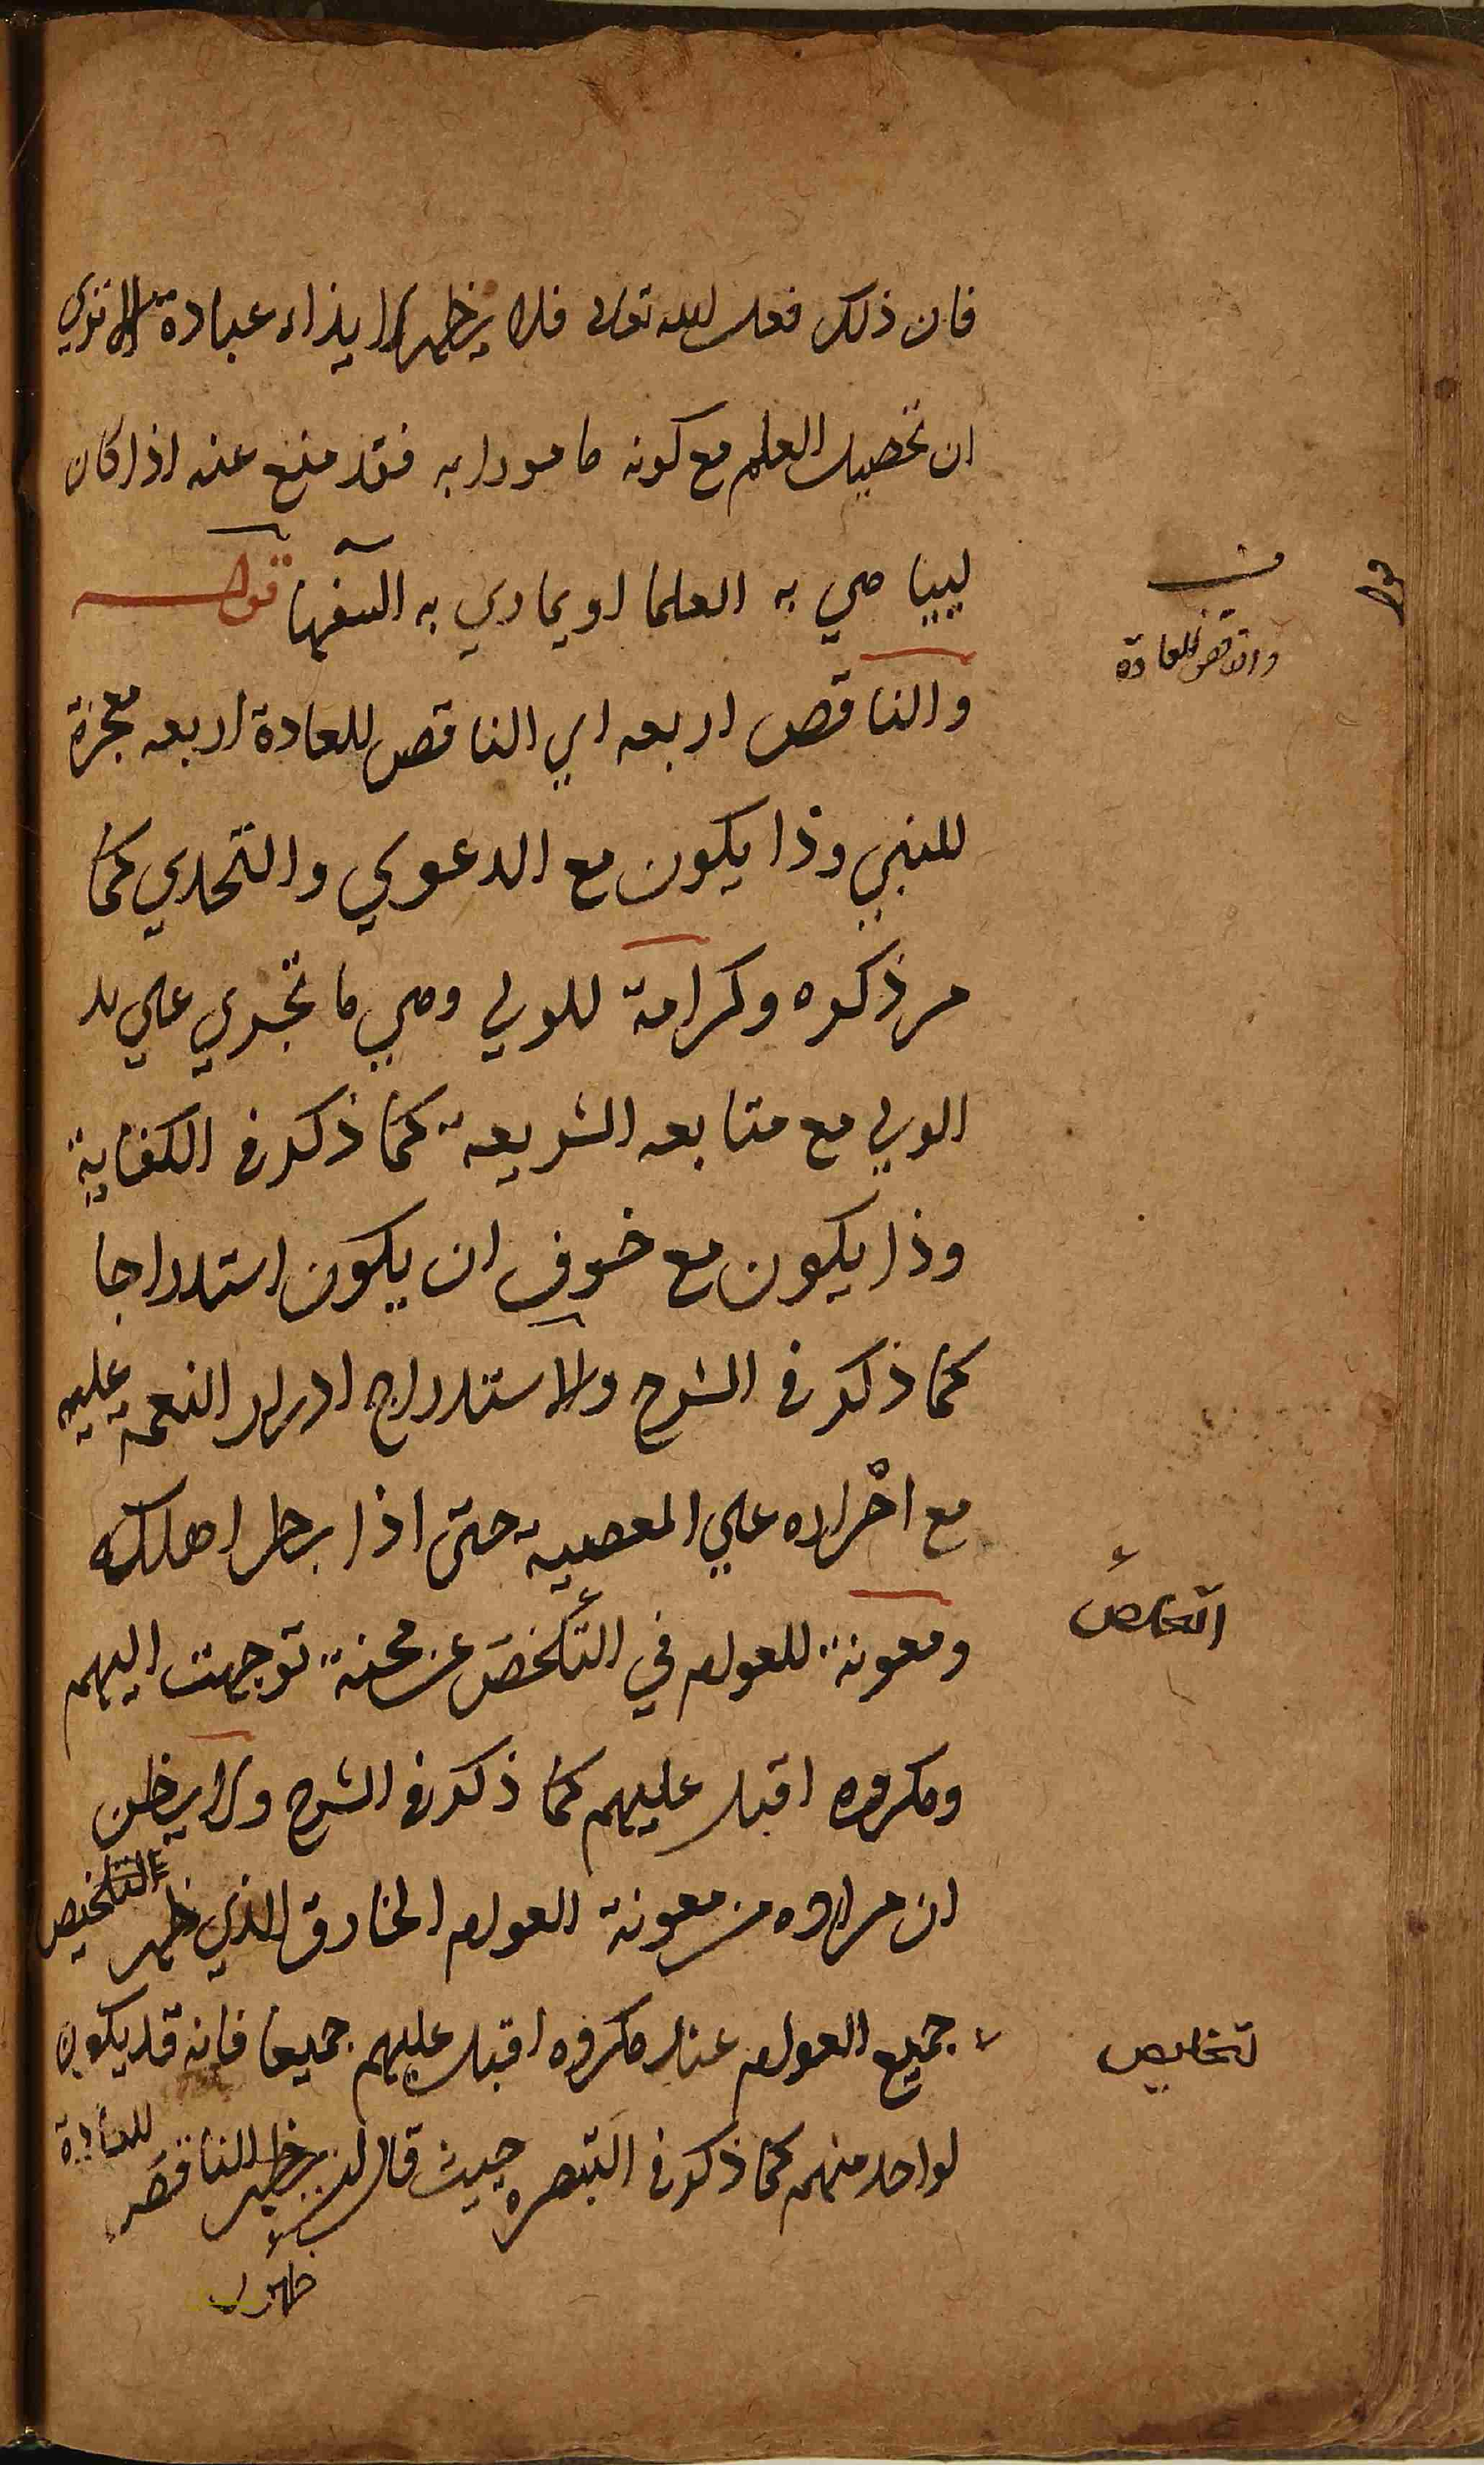 فان ذلك فعل الله تعالى فلا يظهر الايذاء عبادة الا تري
ان تحصيل العلم مع كونه مامورا به فقد منع عنه اذا كان
ليباهي به العلما او يماري به السفها قوله
والناقض اربعه اي الناقض للعادة اربعه معجزة
للنبي وذا يكون مع الدعوي والتحدي كما
مر ذكره وكرامة للولي وهي ما تجري علي يد
الولي مع متابعه الشريعة كما ذكر في الكفاية
وذا يكون مع خوف ان يكون استدراجا
كما ذكر في الشرح والاستدراج ادرار النعمة عليه
مع اصراره علي المعصية حتى اذا بطر اهلكه
ومعونة للعوام في التخلص عن محنة توجهت اليهم
ومكروه اقبل عليهم كما ذكر في الشرح ولا يظن
ان مراده من معونة العوام الخارق الذي ظهر التخليص
جميع العوام عند مكروه اقبل عليهم جميعا فانه قد يكون
لواحد منهم كما ذكر في التبصره حيث قال يظهر الناقض للعادة
والناقض للعادة
التخلص
تخليص